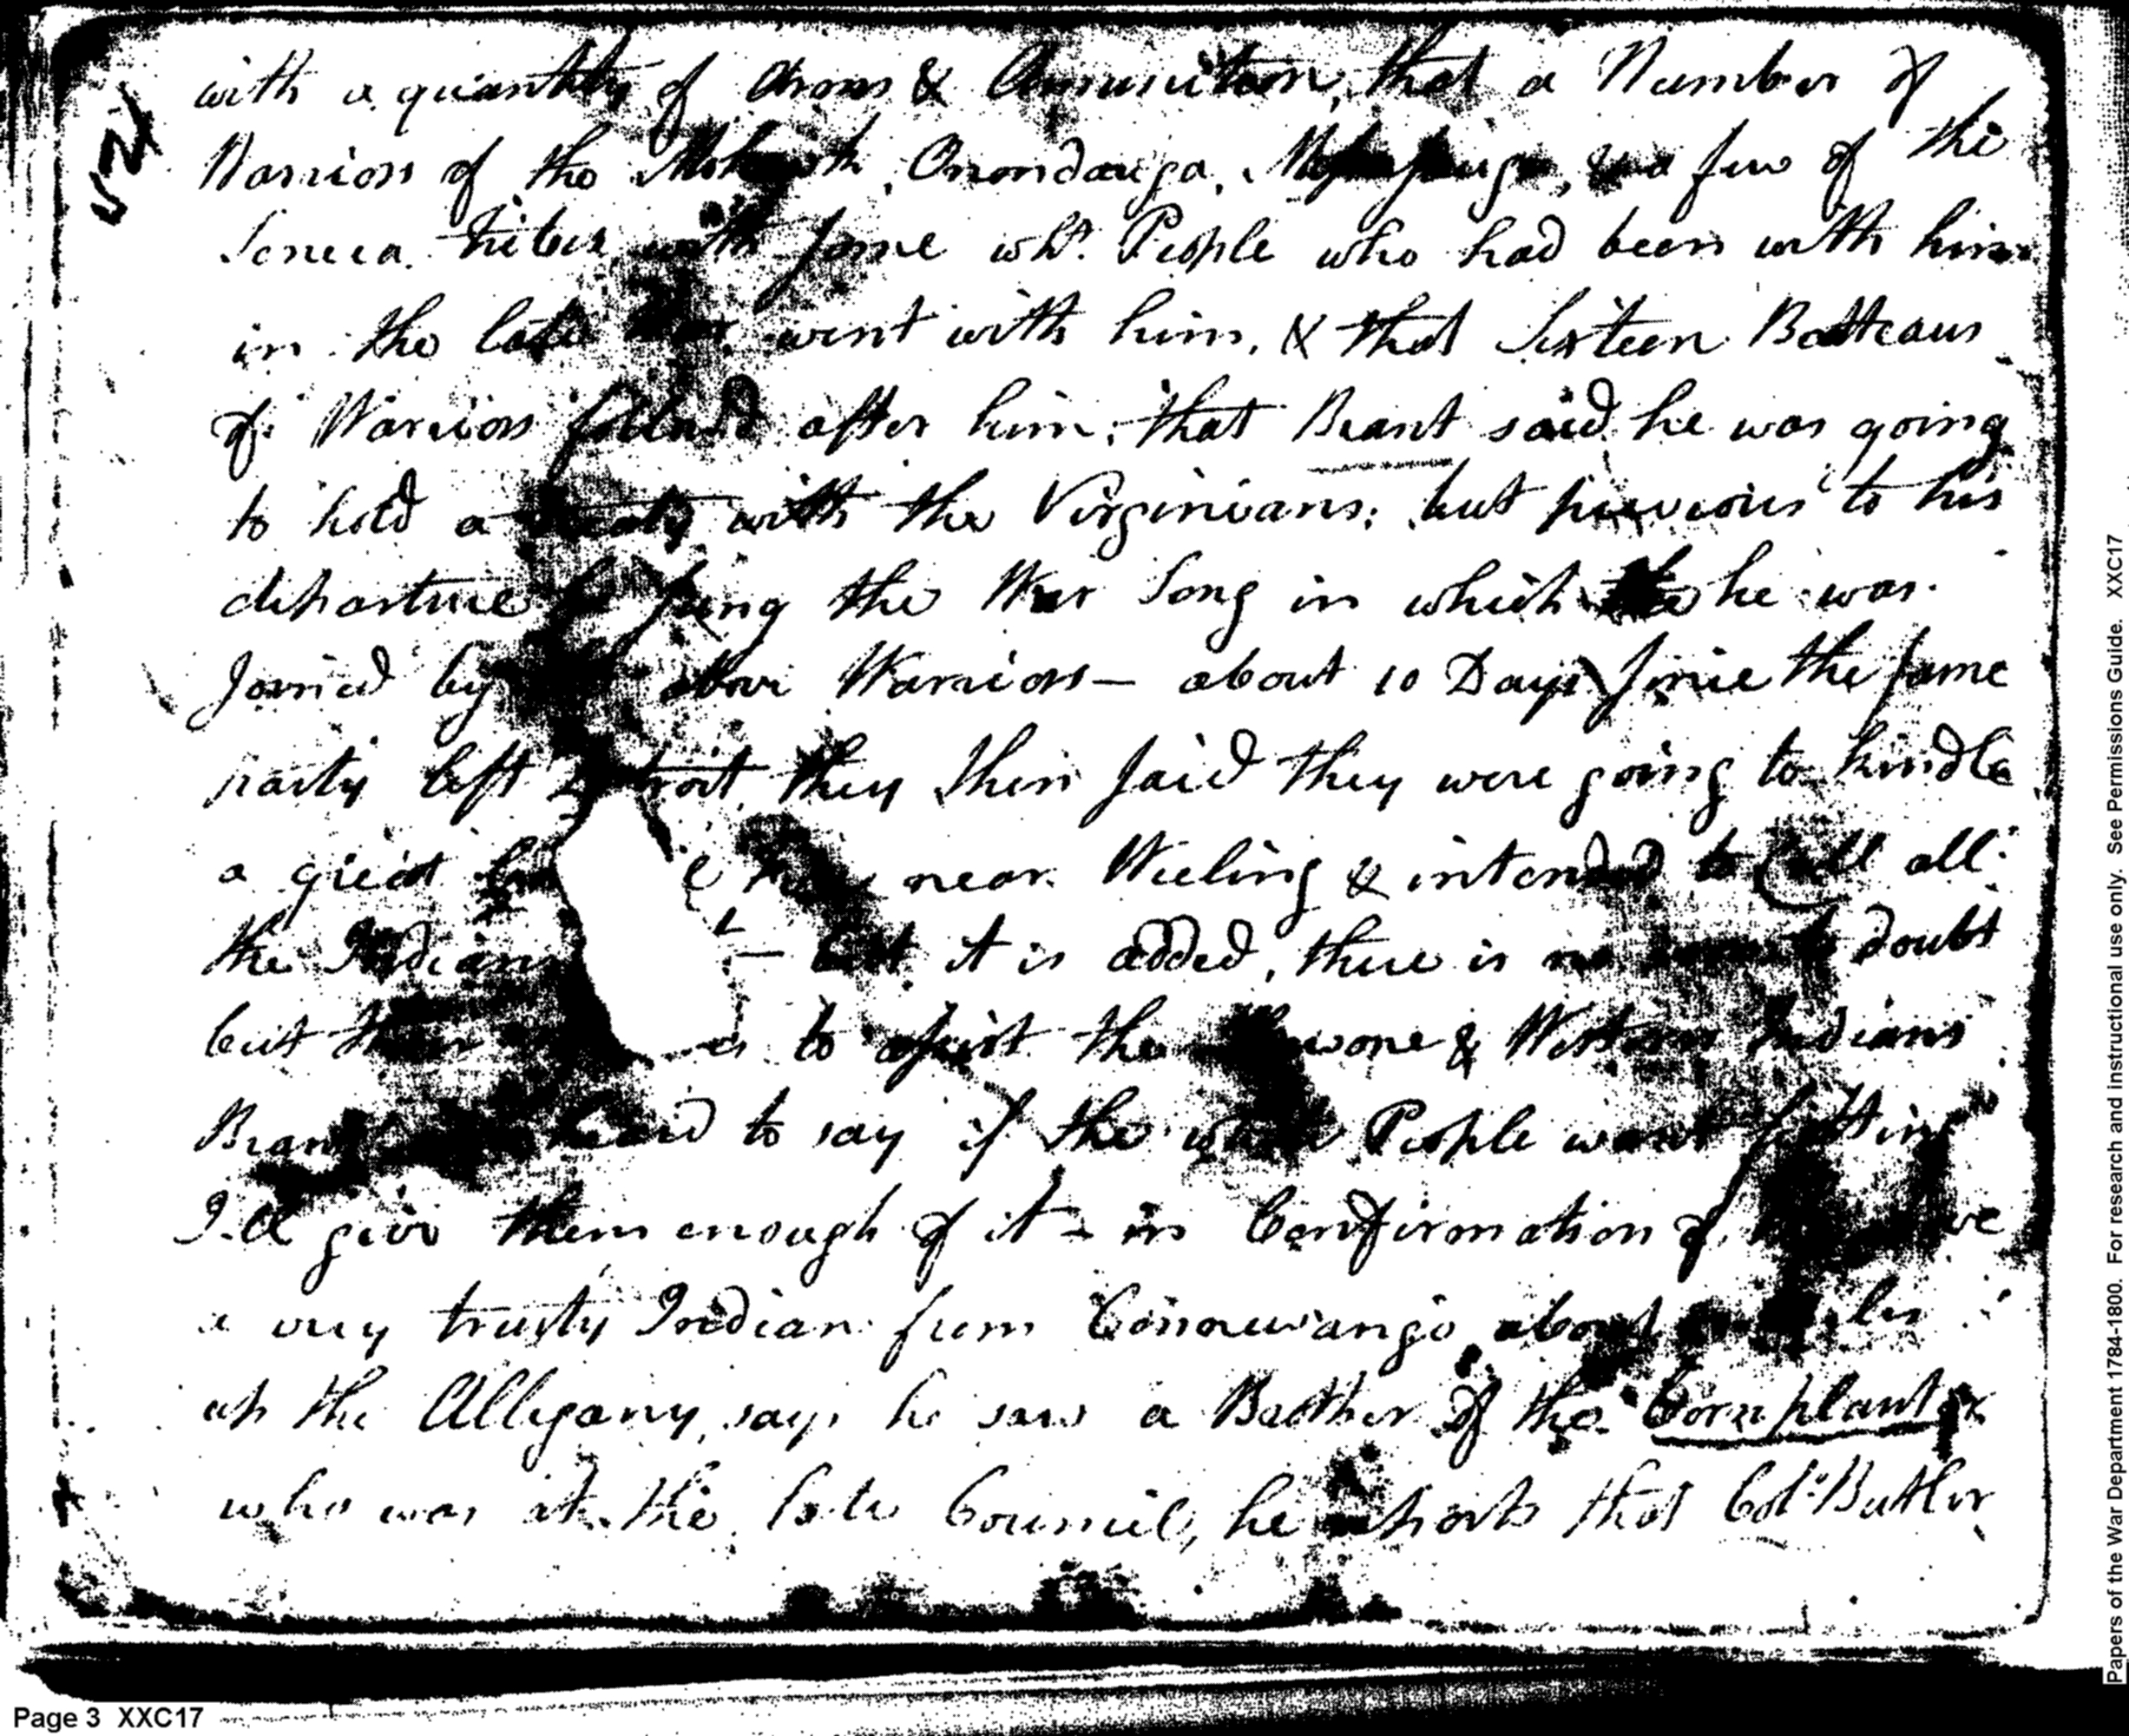 with a quantity of Arms & Ammunition, that a Number of
Warriors of the Mohawk, Onondauga, & a few of the
Seneca tribes with some wht. People who had been with him
in the late War, went with him, & that Sixteen Batteaus
of Warriors followd after him; that Brant said he was going
to hold a treaty with the Virginians; but previous to his
departure he sung the War Song in which he was
Joined by above Warriors— about 10 Days since the same
party left Detroit, they then said they were going to kindle
a great near Wieling & intended to Call all
the Indians — but it is added, there is no to doubt
but to assist the & Western Indians
Brant heard to say if the white People want fighting
I.ll give them enough of it – in Confirmation of
a very trusty Indian from Connewango about
up the Allegany, says he saw a Brother of the Cornplanter
who was at the late Council, he reports that Col: Butler
Page 3 XXC17
Papers of the War Department 1784-1800. For research and instructional use only. See Permissions Guide. XXC17